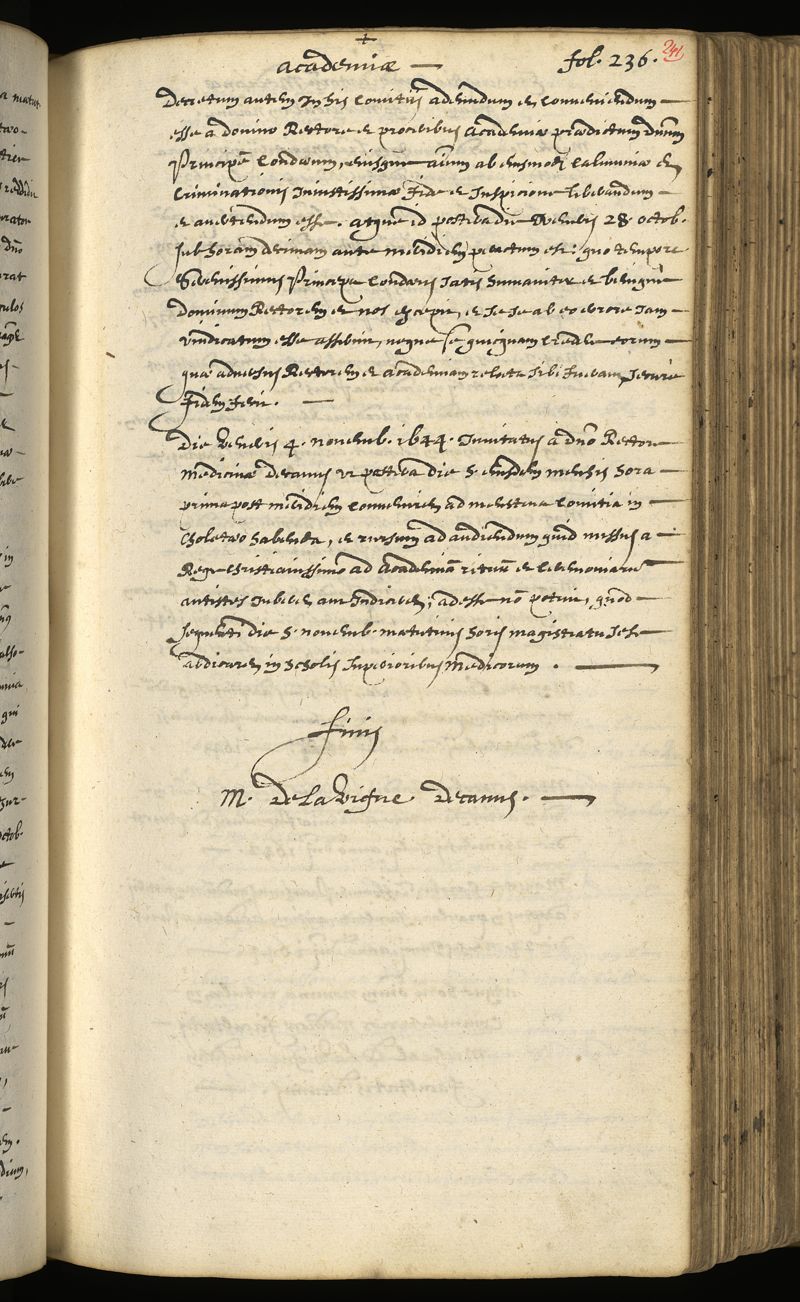 +
Academiæ — fol. 236. 241
Decretum autem in his Comitiis adeundum et conveniendum —
esse a domino Rectore et proceribus Academiæ prædictum dnum
Principem Condæum, eiusque aium ab eiusmodi calumniæ et
Criminationis iniustissimæ fide et suspicione liberandum —
et avertendum esse. atque id postera die Veneris 28. octob.
sub horam decimam ante meridiem peractum est: quo tempore
Serenissimus Princeps Condæus satis humaniter et benignè
dominum Rectorem et nos excepit, et sese ab eo errore iam —
vindicatum esse asseruit, neque se quicquam credere eorum —
quæ adversus Rectorem et Academiam relata sibi fuerant
fidem fecit. —
Die Veneris 4. novemb. 1644. Invitatus a dno Rectore
medicinæ decanus ut postera die 5. eiusdem mensis hora —
prima post meridiem conveniret ad menstrua Comitia in —
Scholis habenda, et rursum ad audiendum quid missus a —
Rege Christianissimo ad Academiam rituum et ceremoniarum
antistes iuberet aut indiceret; adesse non potui, quod —
sequenti die 5. novemb. matutinis horis magistratu sese
abdicaret in scholis superioribus medicorum. —
finis
M. De la Vigne Decanus. —